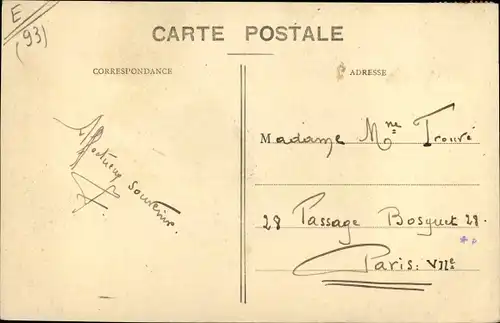 E
(93)
CARTE POSTALE
CORRESPONDANCE
ADRESSE
souvenir.
Madame Mme Trouvé
28 Passage Bosquet 28.
Paris: VIIe